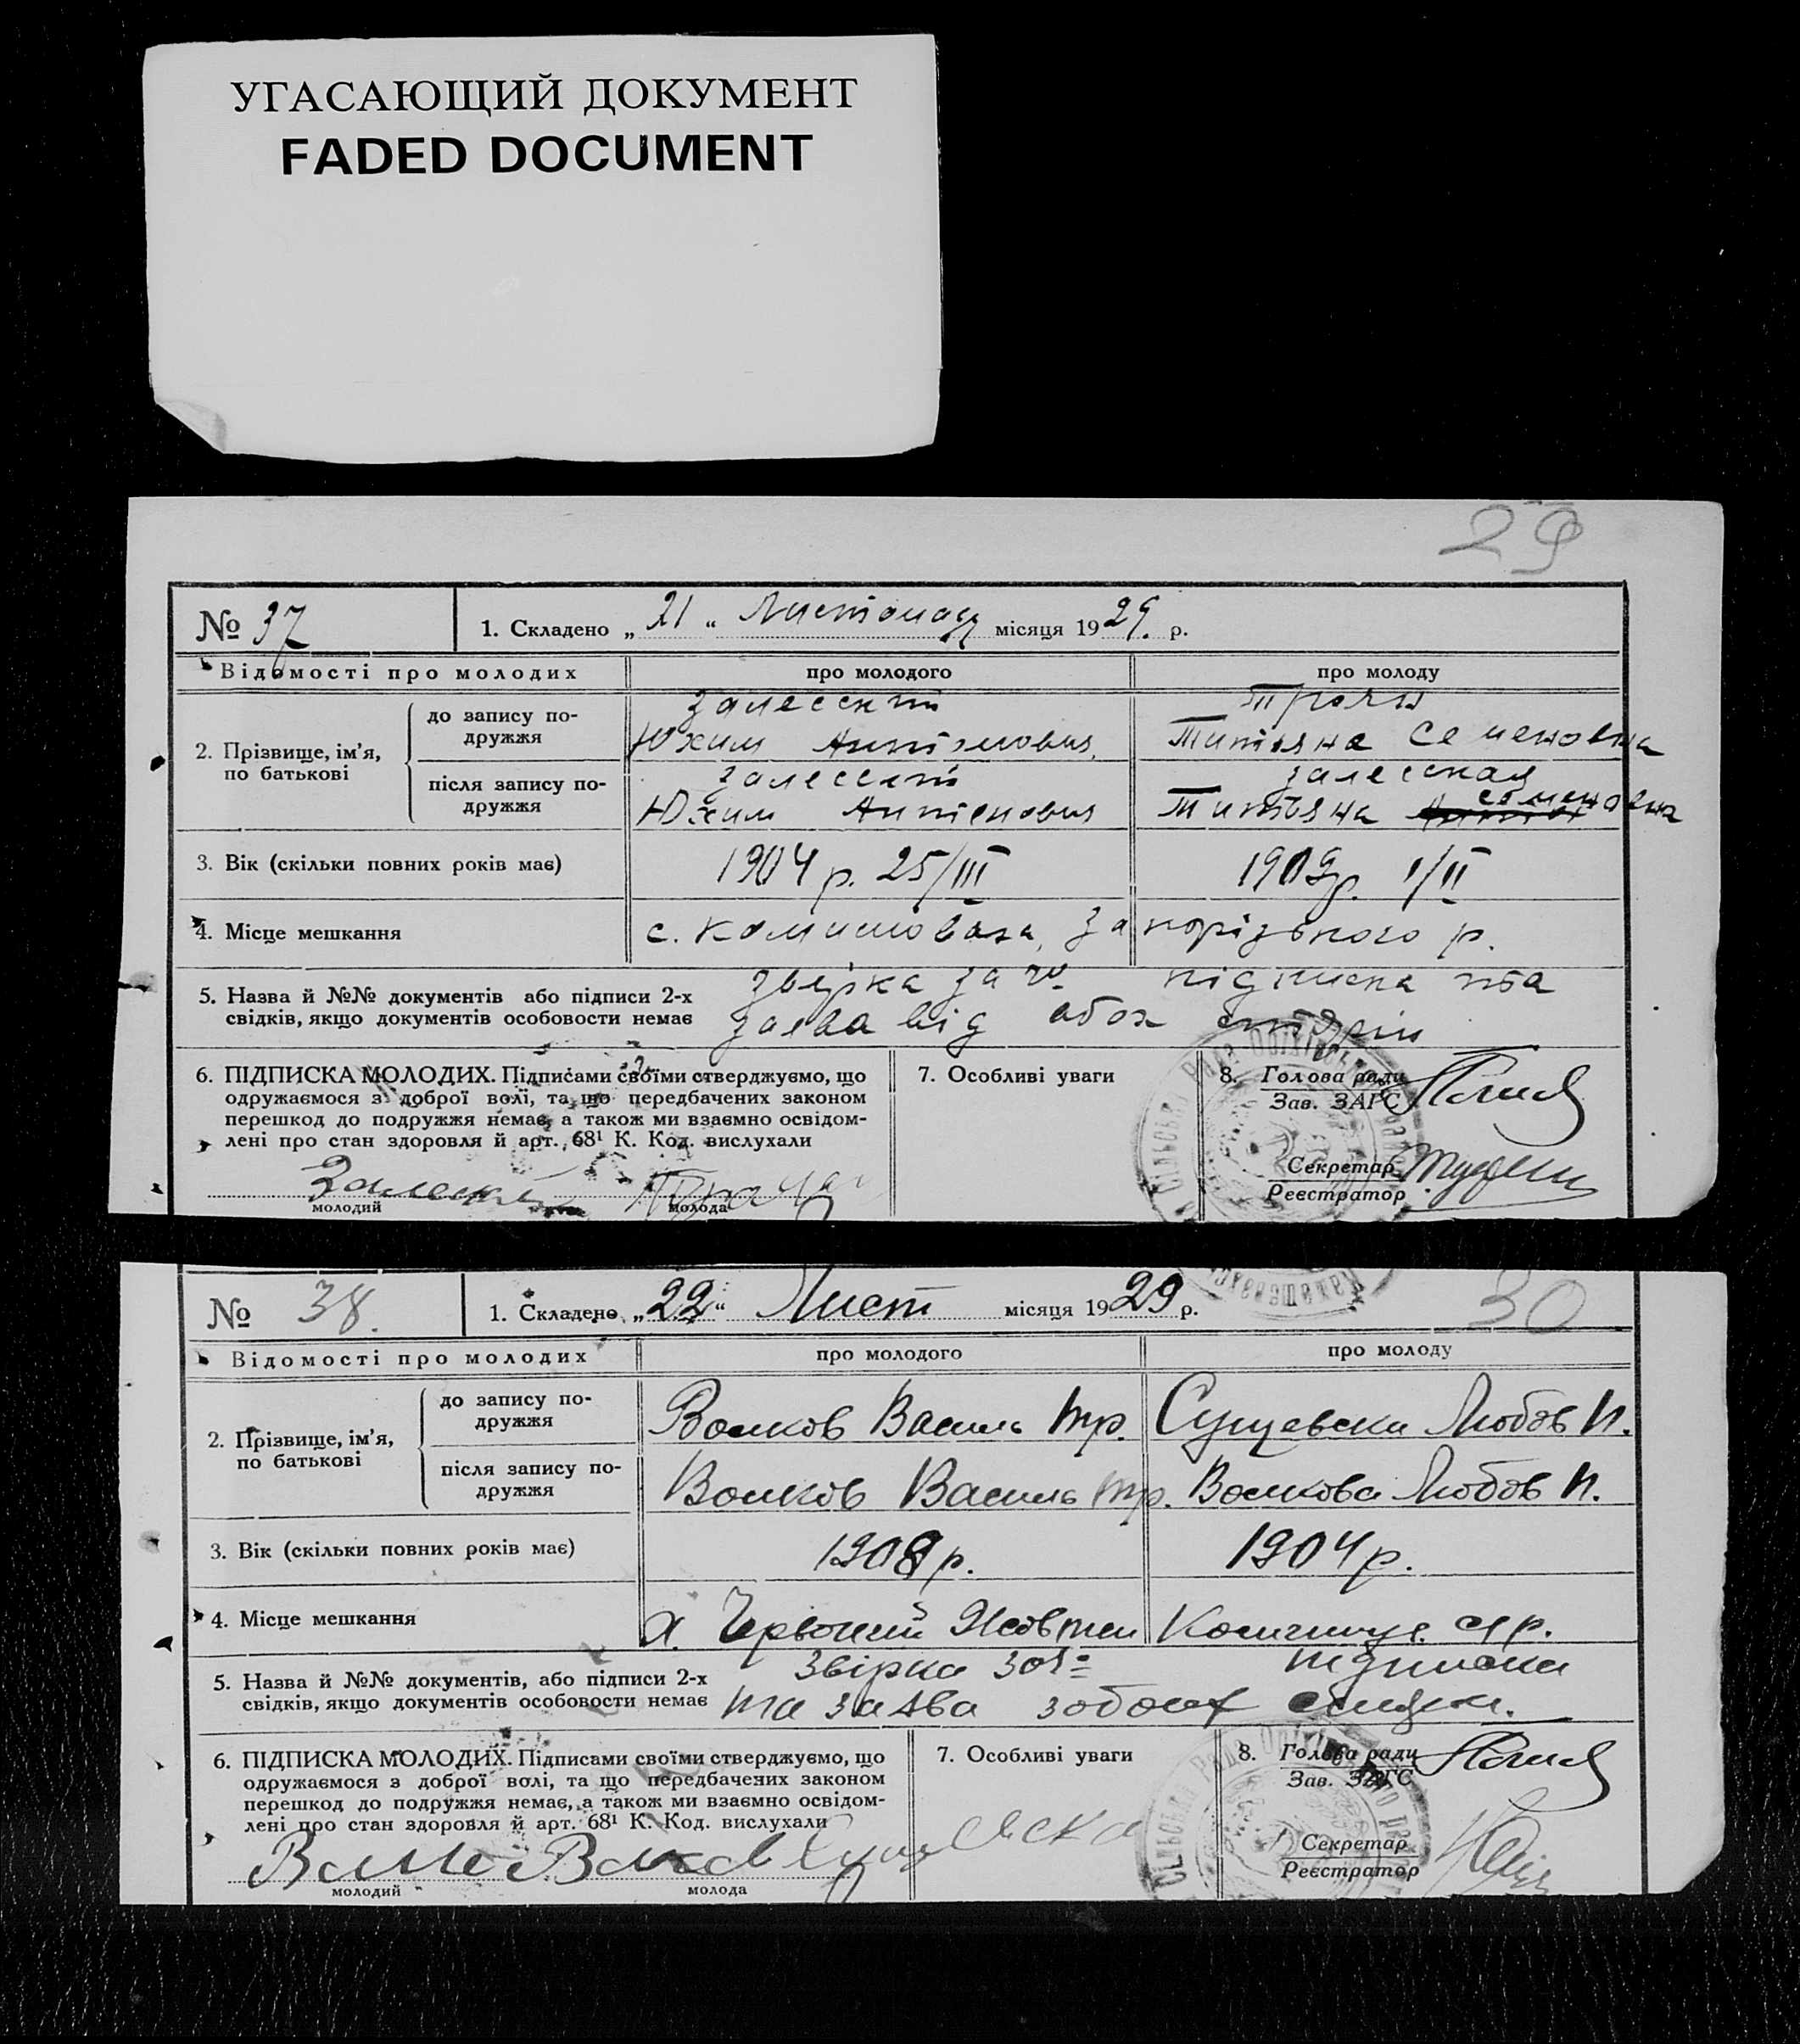 УГАСАЮЩИЙ ДОКУМЕНТ
FADED DOCUMENT
29
№ 37
1. Складено „ 21 “ Листопаду місяця 1929. р.
Відомості про молодих
про молодого
про молоду
2. Прізвище, ім’я, по батькові
до запису подружжя
Залеский
Юхим
Титяна Семеновна
після запису подружжя
Залеский
Юхим
Залесская
Титьяна Семеновна
3. Вік (скільки повних років має)
1904 р. 25/III
1909 р. 1/II
4. Місце мешкання
с. Комишоваха, Запорізького р.
5. Назва й №№ документів або підписи 2-х
свідків, якщо документів особовости немає
звірка за № підписка та
заява від обох сторін
6. ПІДПИСКА МОЛОДИХ. Підписами своїми стверджуємо, що
одружаємося з доброї волі, та що передбачених законом
перешкод до подружжя немає, а також ми взаємно освідом-
лені про стан здоровля й арт. 68¹ К. Код. вислухали
Залеский
молодий
молода
7. Особливі уваги
8. Голова ради
Зав. ЗАГС
Секретар
Реєстратор
№ 38.
1. Складено „22“ Лист місяця 1929 р.
30
Відомості про молодих
про молодого
про молоду
2. Прізвище, ім’я, по батькові
до запису подружжя
Волков Василь Тр.
Сущевска Любов И.
після запису подружжя
Волков Василь Тр.
Волкова Любов И.
3. Вік (скільки повних років має)
1908 р.
1904 р.
4. Місце мешкання
х. Червоний Жовтень
5. Назва й №№ документів, або підписи 2-х
свідків, якщо документів особовости немає
Звірка підписка
та заява з обоих
6. ПІДПИСКА МОЛОДИХ. Підписами своїми стверджуємо, що
одружаємося з доброї волі, та що передбачених законом
перешкод до подружжя немає, а також ми взаємно освідом-
лені про стан здоровля й арт. 68¹ К. Код. вислухали
молодий
молода
7. Особливі уваги
8. Голова ради
Зав. ЗАГС
Секретар
Реєстратор